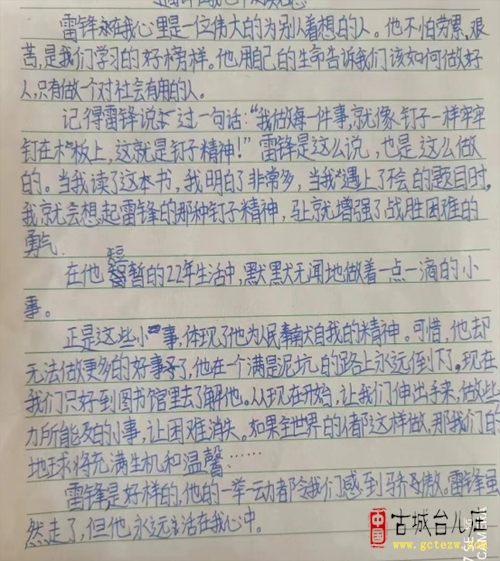 雷锋永在我心里是一位伟大的为别人着想的人。他不怕劳累,艰
苦,是我们学习的好榜样。他用自己的生命告诉我们该如何做好
人,只有做一个对社会有用的人。
记得雷锋说过一句话:“我做每一件事,就像钉子一样牢牢
钉在木板上,这就是钉子精神!”雷锋是这么说,也是这么做
的。当我读了这本书,我明白了非常多,当我遇上了不会的题目时,
我就会想起雷锋的那种钉子精神,马上就增强了战胜困难的
勇气。
在他短暂的22年生活中,默默无闻地做着一点一滴的小
事。
正是这些小事,体现了他为人民奉献自我的精神。可惜,他却
无法做更多的好事了,他在一个满是泥坑的路上永远倒下了。现在
我们只好到图书馆里去了解他。从现在开始,让我们伸出手来,做些
力所能及的小事,让困难消失。如果全世界的人都这样做,那我们的
地球将充满生机和温馨……
雷锋是好样的,他的一举一动都令我们感到骄傲。雷锋虽
然走了,但他永远生活在我心中。
中国
古城台儿庄
www.gctezw.com